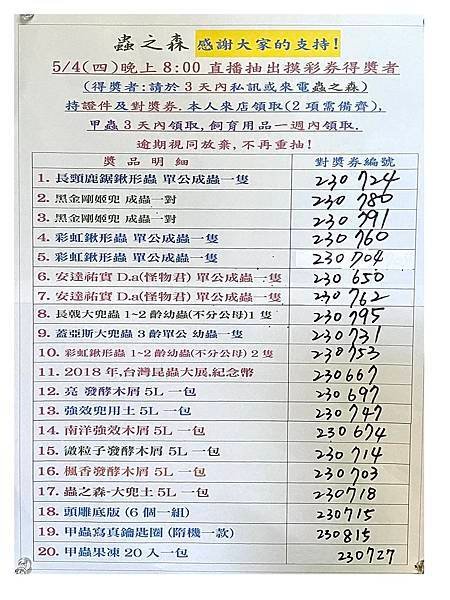 蟲之森 感謝大家的支持!
5/4(四)晚上 8:00 直播抽出摸彩券得獎者
(得獎者:請於 3 天內私訊或來電蟲之森)
持證件及對獎券.本人來店領取(2 項需備齊),
甲蟲 3 天內領取,飼育用品一週內領取.
逾期視同放棄,不再重抽!
獎品明細 對獎券編號
1. 長頸鹿鋸鍬形蟲 單公成蟲一隻 230724
2. 黑金剛姬兜 成蟲一對 230780
3. 黑金剛姬兜 成蟲一對 230791
4. 彩虹鍬形蟲 單公成蟲一隻 230760
5. 彩虹鍬形蟲 單公成蟲一隻 230704
6. 安達祐實 D.a(怪物君) 單公成蟲一隻 230650
7. 安達祐實 D.a(怪物君) 單公成蟲一隻 230762
8. 長戟大兜蟲 1~2 齡幼蟲(不分公母)1 隻 230795
9. 蓋亞斯大兜蟲 3 齡單公 幼蟲一隻 230731
10. 彩虹鍬形蟲 1~2 齡幼蟲(不分公母) 2 隻 230753
11. 2018 年,台灣昆蟲大展,紀念幣 230667
12. 亮 發酵木屑 5L 一包 230697
13. 強效兜用土 5L 一包 230747
14. 南洋強效木屑 5L 一包 230674
15. 微粒子發酵木屑 5L 一包 230714
16. 楓香發酵木屑 5L 一包 230703
17. 蟲之森-大兜土 5L 一包 230718
18. 頭雕底版 (6 個一組) 230715
19. 甲蟲寫真鑰匙圈 (隨機一款) 230815
20. 甲蟲果凍 20 入一包 230727